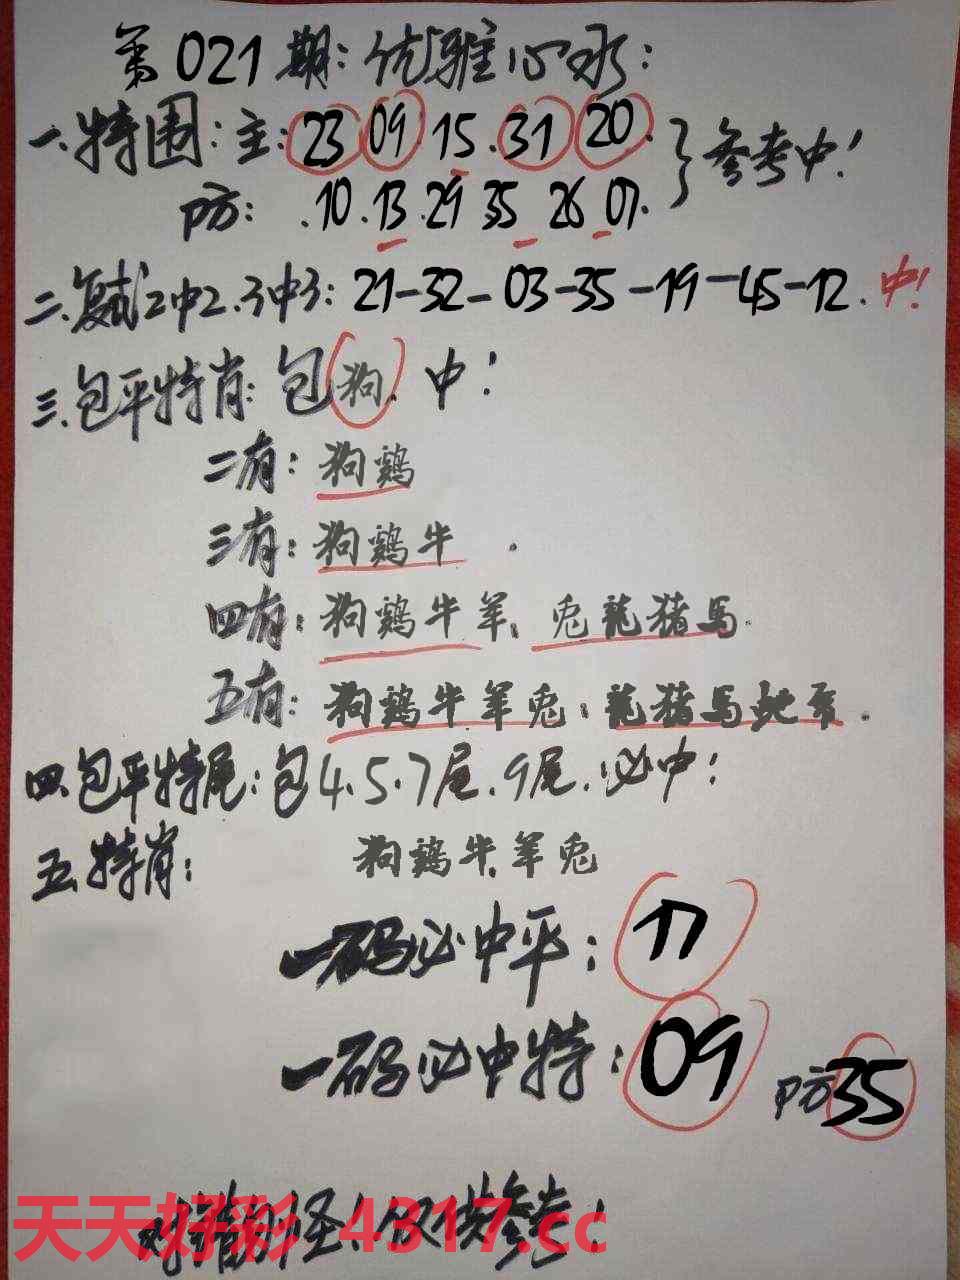 第021期：优雅心水：
一.特围：主：23 09 15.31 20. }参考中！
防：.10.13.29 35 26 07.
二.复试2中2.3中3：21-32-03-35-19-45-12.中！
三.包平特肖：包狗.中！
二有：狗鷄
三有：狗鷄牛.
四有：狗鷄牛羊、兎龍猪馬.
五有：狗鷄牛羊兎：龍猪馬蛇.
四.包平特尾：包4.5.7尾.9尾.必中！
五.特肖：狗鷄牛.羊兎
一码必中平：17
一码必中特：09 防35
对错别怪！仅供参考！
天天好彩 4317.cc